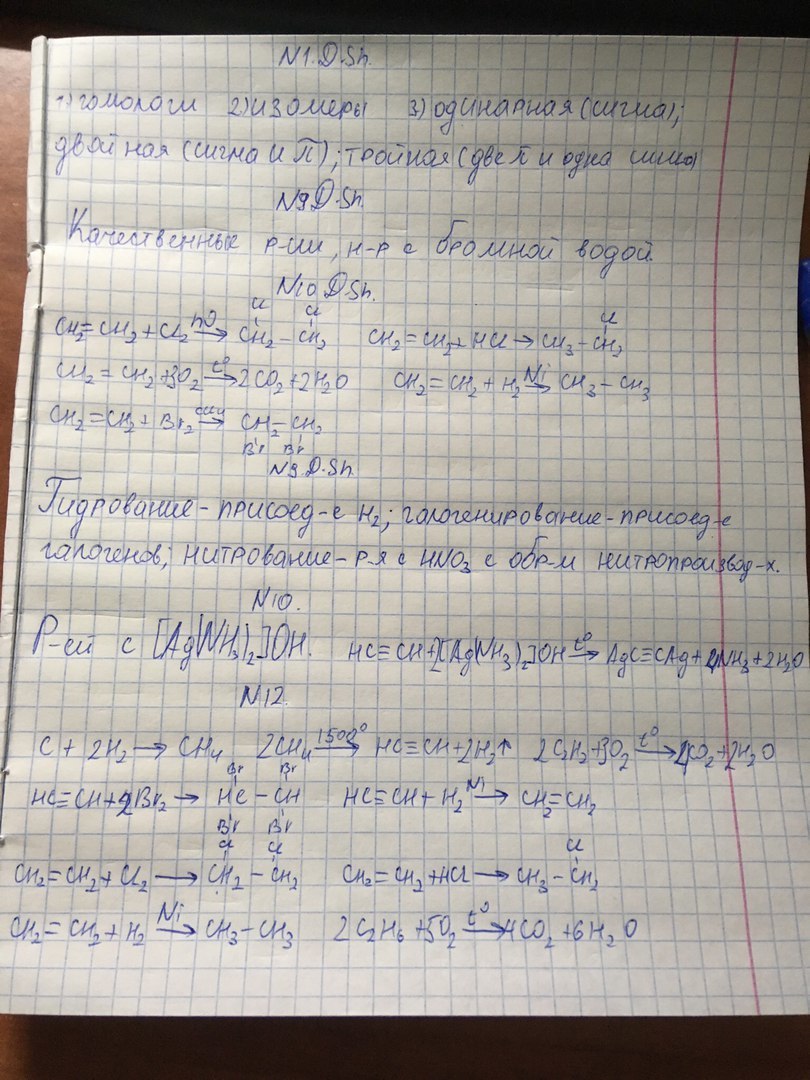 N1. D.Sh.
1) гомологи 2) изомеры 3) одинарная (сигма);
двойная (сигма и π); тройная (две π и одна сигма)
N9 D.Sh.
Качественные р-ии, н-р с бромной водой.
N10 D.Sh.
Cl Cl Cl
CH2=CH2+Cl2 → CH2-CH2 CH2=CH2+HCl→CH3-CH2
CH2=CH2+3O2 t°→ 2CO2+2H2O CH2=CH2+H2 Ni→ CH3-CH3
CH2=CH2+Br2 → CH2-CH2
Br Br
N9. D.Sh.
Гидрование - присоед-е H2; галогенирование - присоед-е
галогенов; нитрование - р-я с HNO3 с обр-м нитропроизвод-х.
N10.
Р-ей с [Ag(NH3)2]OH. HC≡CH+2[Ag(NH3)2]OH t°→ AgC≡CAg+4NH3+2H2O
N12.
C+2H2→CH4 2CH4 1500°→ HC≡CH+3H2↑ 2C2H2+5O2 t°→ 4CO2+2H2O
Br Br
HC≡CH+2Br2→ HC-CH HC≡CH+H2 Ni→ CH2=CH2
Br Br
Cl Cl Cl
CH2=CH2+Cl2→CH2-CH2 CH2=CH2+HCl→CH3-CH2
CH2=CH2+H2 Ni→ CH3-CH3 2C2H6+5O2 t°→ 4CO2+6H2O